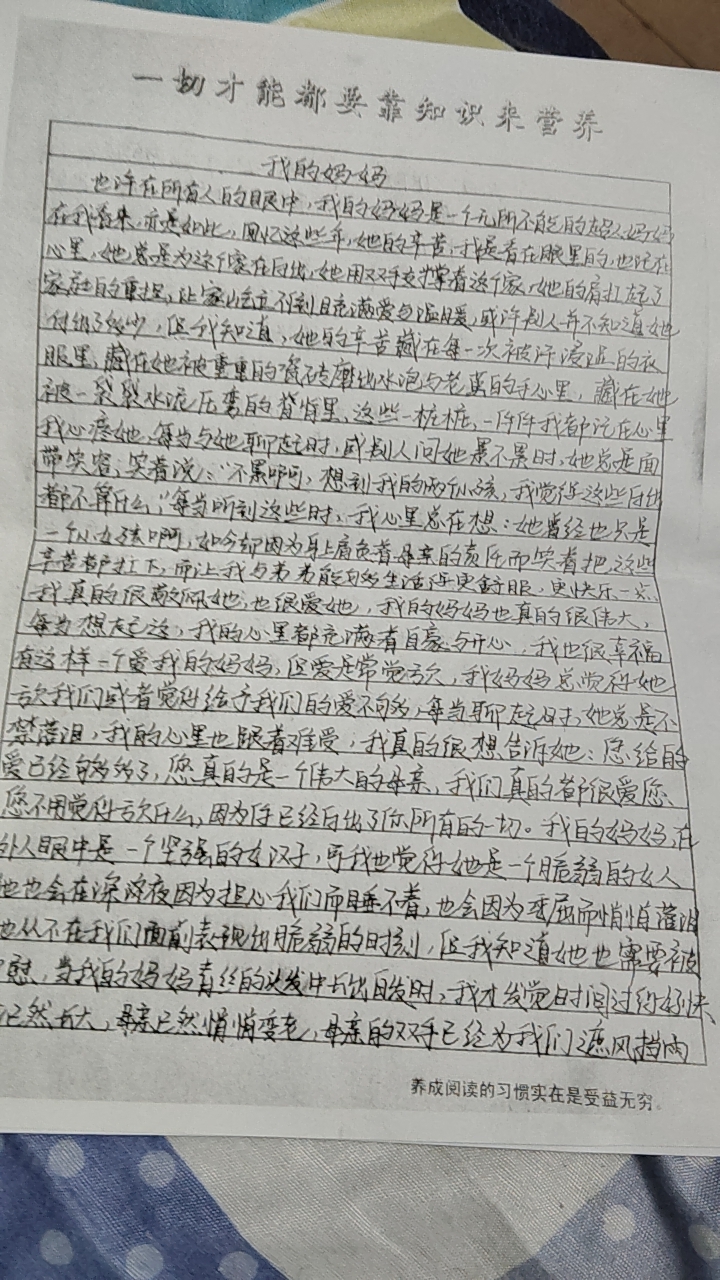 一切才能都要靠知识来营养
我的妈妈
也许在所有人的眼中，我的妈妈是一个无所不能的超人妈妈
在我看来，亦是如此，回忆这些年，她的辛苦，我是看在眼里的，也记在
心里，她总是为这个家在付出，她用双手支撑着这个家，她的肩扛起了
家庭的重担，让家庭充满爱与温暖，或许别人并不知道她
付出了多少，但我知道，她的辛苦藏在每一次被汗浸湿的衣
服里，藏在她被重重的瓷砖磨出水泡与老茧的手心里，藏在她
被一袋袋水泥压弯的脊背里，这些一桩桩，一件件我都记在心里
我心疼她，每当与她聊起时，或别人问她累不累时，她总是面
带笑容，笑着说："不累啊，想到我的两个小孩，我觉得这些付出
都不算什么，"每当听到这些时，我心里总在想：她曾经也只是
一个小女孩啊，如今却因为身上肩负着母亲的责任而笑着把这些
辛苦都扛下，而让我与弟弟能够生活得更舒服，更快乐一点
我真的很敬佩她，也很爱她，我的妈妈也真的很伟大，
每当想起这，我的心里都充满着自豪与开心，我也很幸福
有这样一个爱我的妈妈，但爱是常觉亏欠，我妈妈总觉得她
亏欠我们或者觉得给予我们的爱不够多，每当聊起时，她总是不
禁落泪，我的心里也跟着难受，我真的很想告诉她：您给的
爱已经够多了，您真的是一个伟大的母亲，我们真的都很爱您、
您不用觉得亏欠什么，因为你已经付出了你所有的一切。我的妈妈，在
外人眼中是一个坚强的女汉子，可我也觉得她是一个脆弱的女人
她也会在深夜因为担心我们而睡不着，也会因为委屈而悄悄落泪
她从不在我们面前表现出脆弱的时刻，但我知道她也需要被
慰，当我的妈妈青丝的头发中长出白发时，我才发觉时间过得好快、
已然长大，母亲已然悄悄变老，母亲的双手已经为我们遮风挡雨
养成阅读的习惯实在是受益无穷。